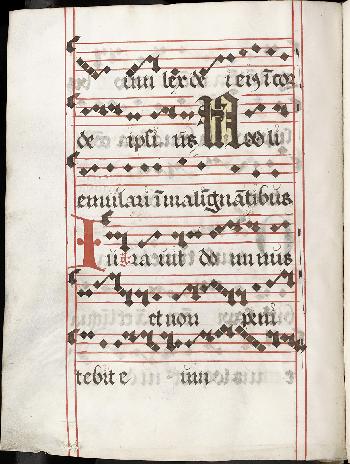 eiuu lex de i ei9 ī cor
de ipsi us Noli
emulari ī malīgnātibus
Iu ra uit do mi nus
et non peni
tebit e um